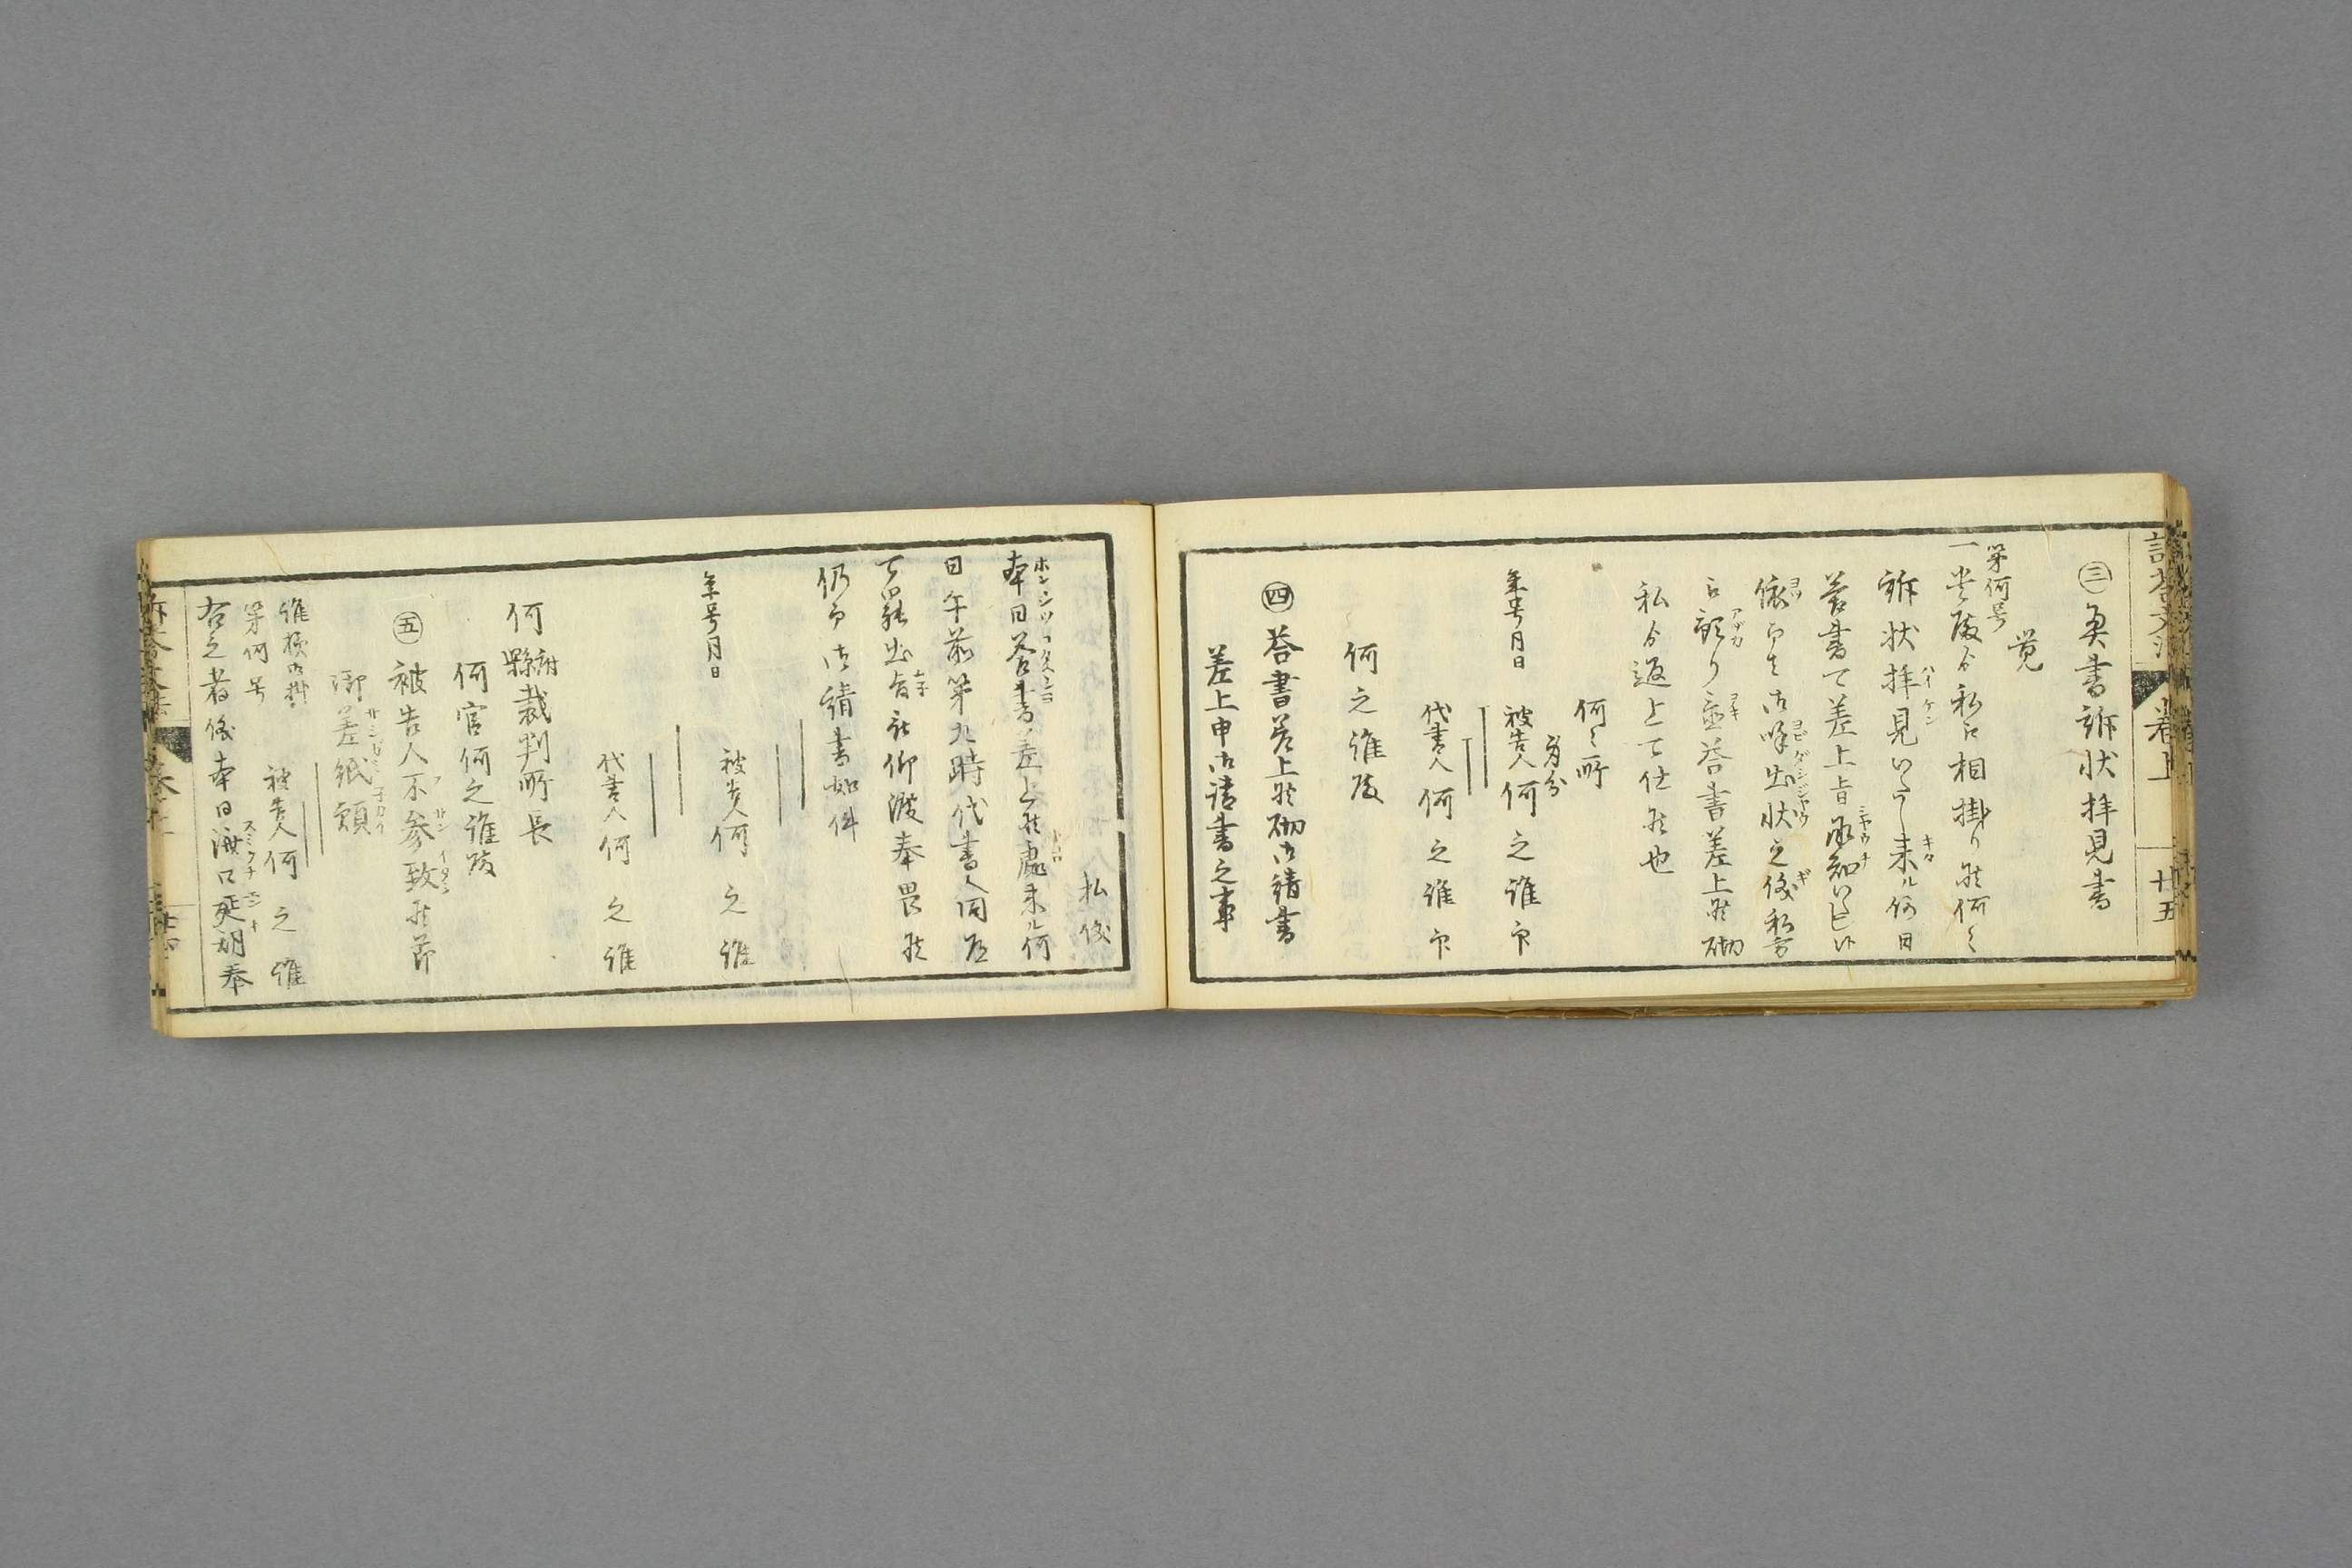 訴答文法
卷上
廿五
㊂ 奥書訴状拝見書
覚
第何号
一貴殿ゟ私江相掛り候何々
訴状拝見いたし来ル何日
答書て差上旨承知いたし候
依而者御呼出状之儀私方
江預り置答書差上候砌
私ゟ返上可仕候也
何々所
身分
年号月日 被告人何之誰印
代書人何之誰印
何之誰殿
㊃ 答書差上候砌御請書
差上申御請書之事
私儀
本日答書差上候處来ル何
日午前第九時代書人同道
可罷出旨被仰渡奉畏候
仍而御請書如件
年号月日
被告人何之誰
代書人何之誰
何府縣裁判所長
何官何之誰殿
㊄ 被告人不参致候節
御差紙願
誰様御掛
第何号
被告人何之誰
右之者儀本日済口延期奉